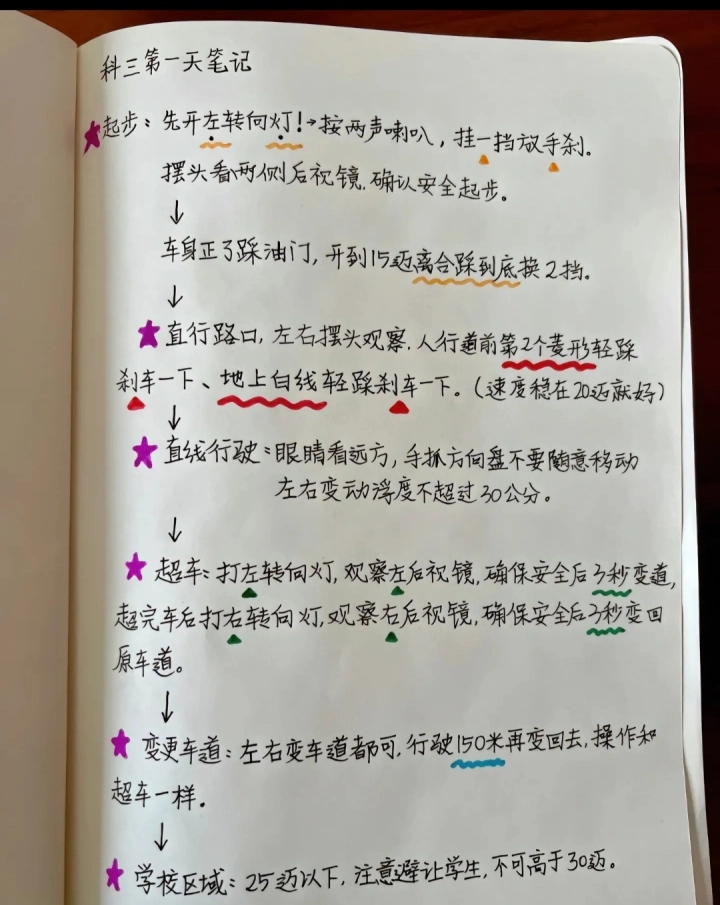 科三第一天笔记
★起步：先开左转向灯！→按两声喇叭，挂一挡放手刹。
摆头看两侧后视镜.确认安全起步。
↓
车身正了踩油门，开到15迈离合踩到底换2挡。
↓
★直行路口，左右摆头观察.人行道前第2个菱形轻踩
刹车一下、地上白线轻踩刹车一下。（速度稳在20迈就好）
↓
★直线行驶：眼睛看远方，手抓方向盘不要随意移动
左右变动浮度不超过30公分。
↓
★超车：打左转向灯，观察左后视镜，确保安全后3秒变道，
超完车后打右转向灯，观察右后视镜，确保安全后3秒变回
原车道。
↓
★变更车道：左右变车道都可，行驶150米再变回去，操作和
超车一样。
↓
★学校区域：25迈以下，注意避让学生，不可高于30迈。